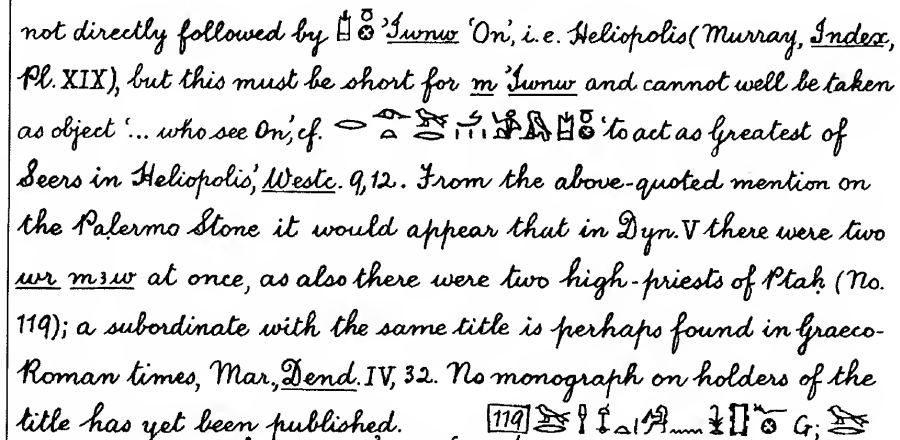 not directly followed by ꞽIwnw 'On', i.e. Heliopolis (Murray, Index,
Pl. XIX), but this must be short for m ꞽIwnw and cannot well be taken
as object '... who see On', cf. 'to act as Greatest of
Seers in Heliopolis', Westc. 9,12. From the above-quoted mention on
the Palermo Stone it would appear that in Dyn. V there were two
wr mꜣw at once, as also there were two high-priests of Ptaḥ (No.
119); a subordinate with the same title is perhaps found in Graeco-
Roman times, Mar., Dend. IV, 32. No monograph on holders of the
title has yet been published. 119 G;